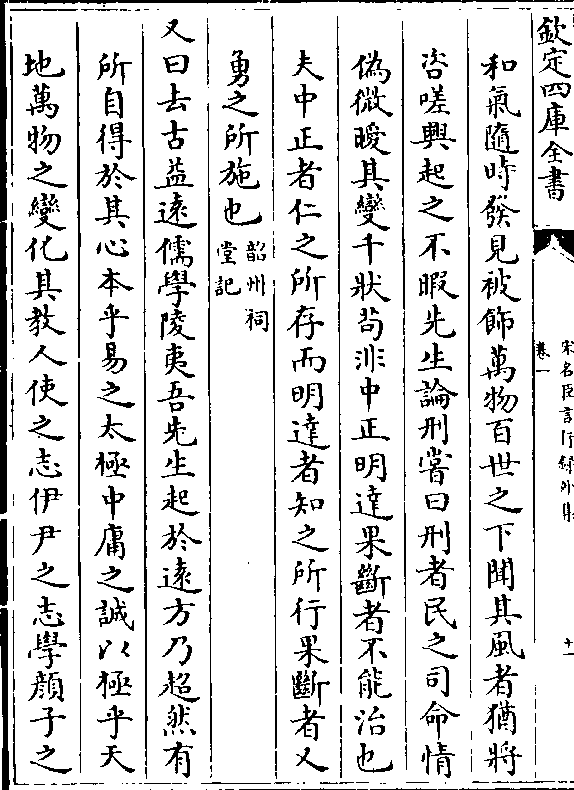 欽定四庫全書
宋名臣言行錄外集
卷一
十一
和氣隨時發見被飾萬物百世之下聞其風者猶將
咨嗟興起之不暇先生論刑嘗曰刑者民之司命情
偽微曖其變千狀苟非中正明達果斷者不能治也
夫中正者仁之所存而明達者知之所行果斷者又
勇之所施也韶州祠堂記
又曰去古益遠儒學陵夷吾先生起於遠方乃超然有
所自得於其心本乎易之太極中庸之誠以極乎天
地萬物之變化其教人使之志伊尹之志學顏子之